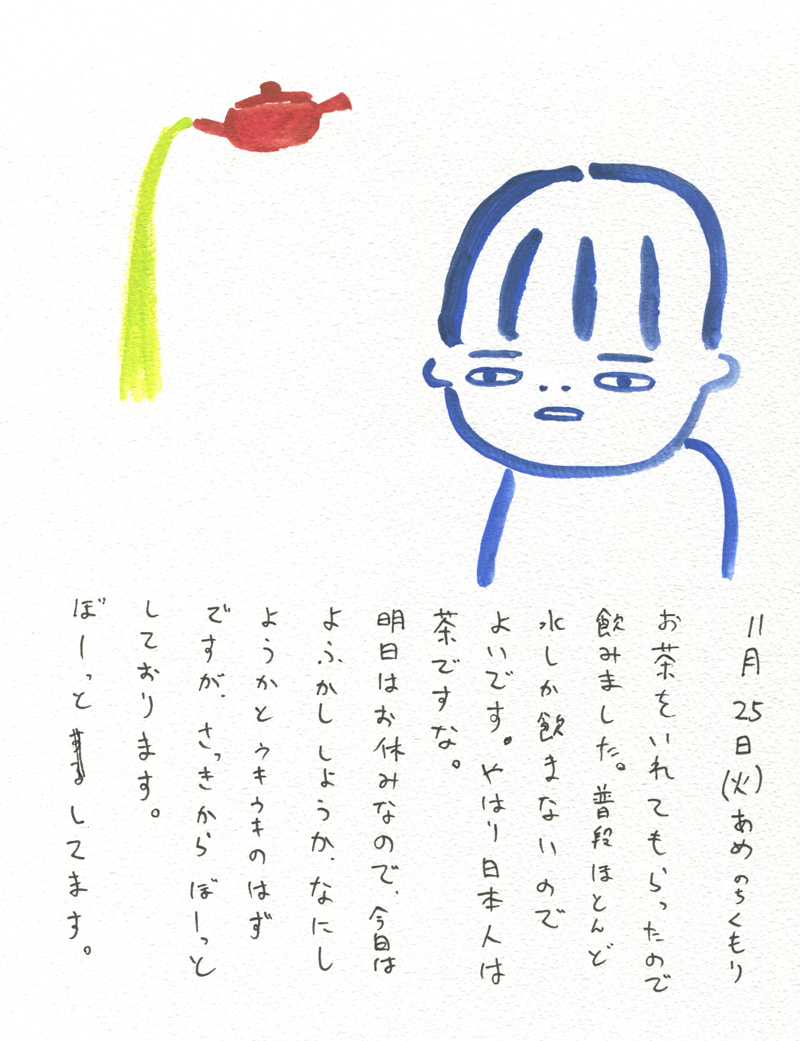 11月25日(火)あめのちくもり
お茶をいれてもらったので
飲みました。普段ほとんど
水しか飲まないので
よいです。やはり日本人は
茶ですな。
明日はお休みなので、今日は
よふかししようか、なにし
ようかとウキウキのはず
ですが、さっきからぼーっと
しております。
ぼーっとしてます。